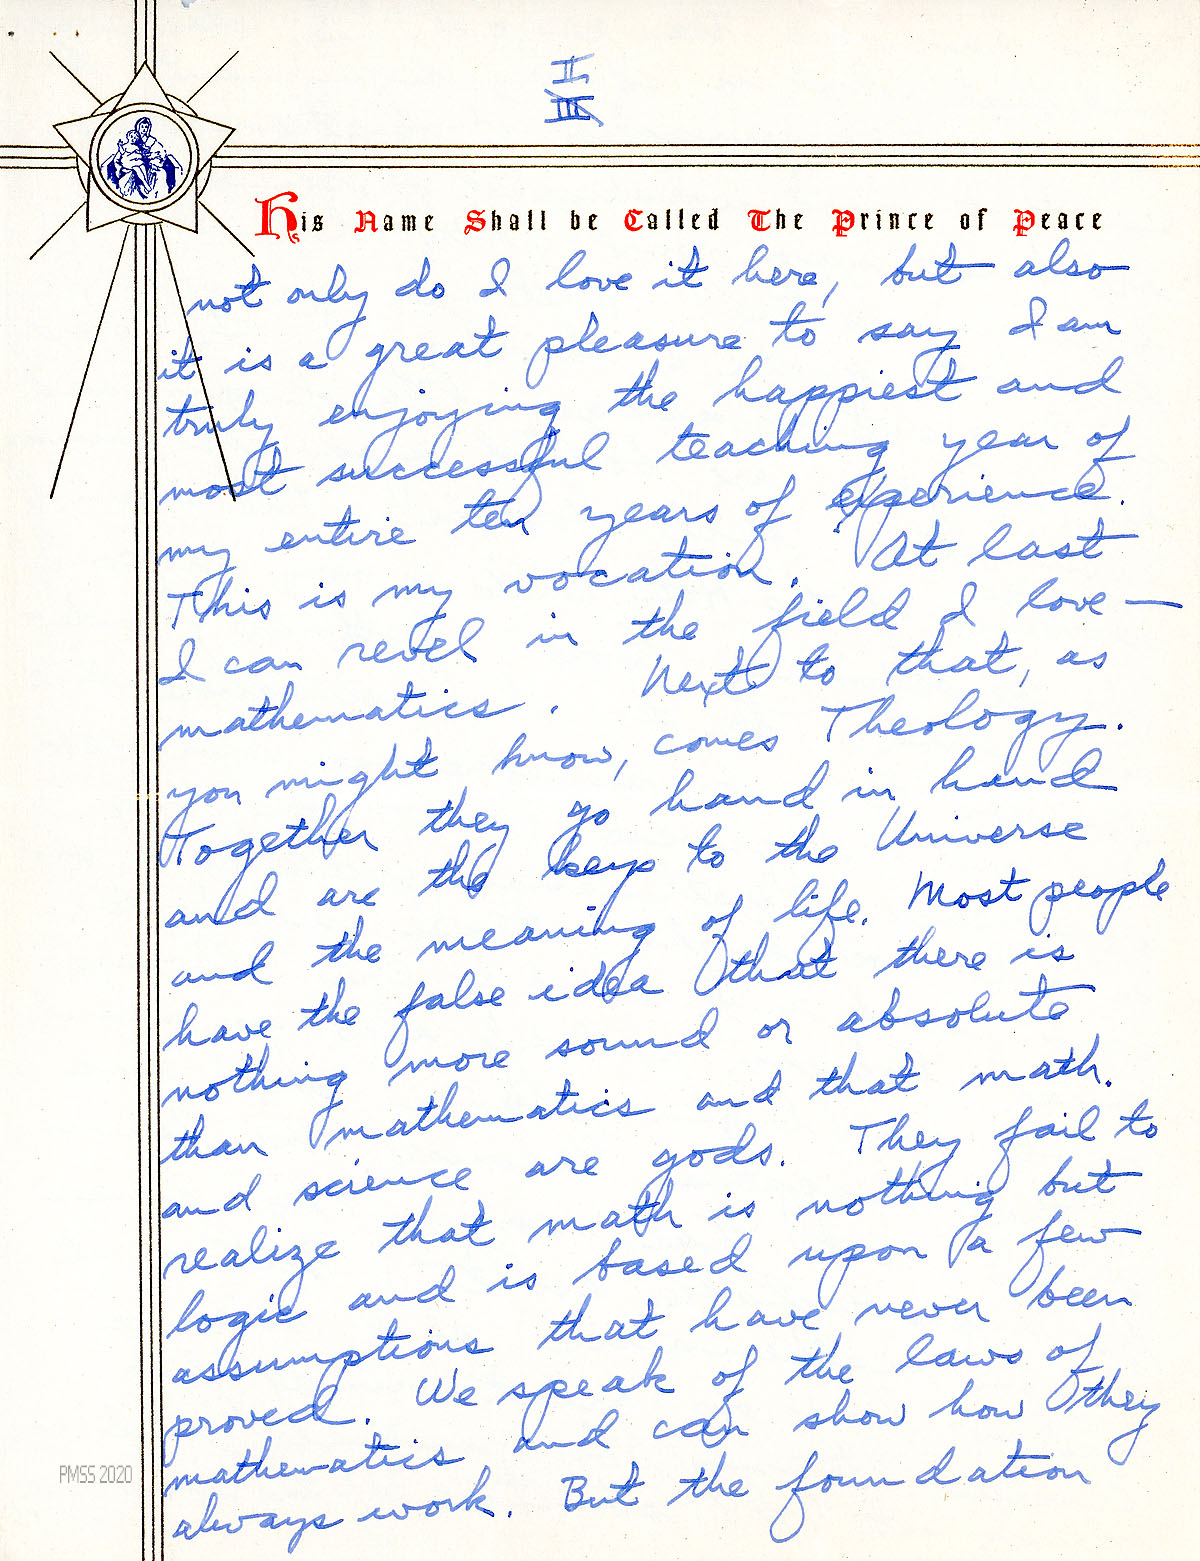 II
III
His Name Shall be Called The Prince of Peace
not only do I love it here, but also
it is a great pleasure to say I am
truly enjoying the happiest and
most successful teaching year of
my entire ten years of experience.
This is my vocation. At last
I can revel in the field I love—
mathematics. Next to that, as
you might know, comes Theology.
Together they go hand in hand
and are the keys to the Universe
and the meaning of life. Most people
have the false idea that there is
nothing more sound or absolute
than mathematics and that math.
and science are gods. They fail to
realize that math is nothing but
logic and is based upon a few
assumptions that have never been
proved. We speak of the laws of
mathematics and can show how they
always work. But the foundation
PMSS 2020